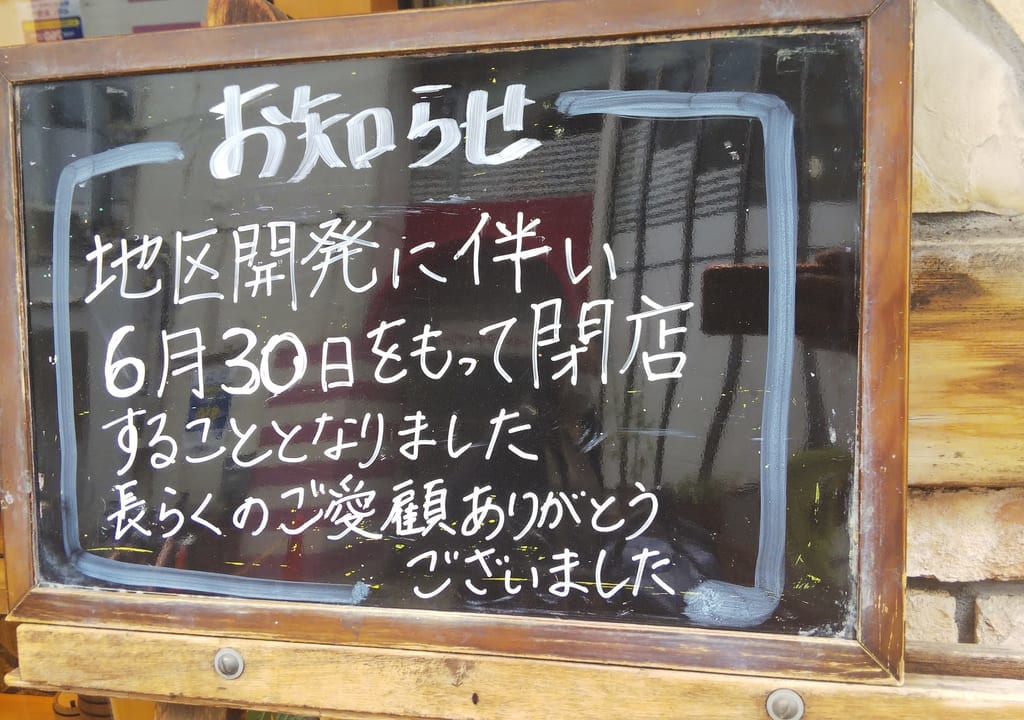 お知らせ
地区開発に伴い
6月30日をもって閉店
することとなりました
長らくのご愛顧ありがとう
ございました